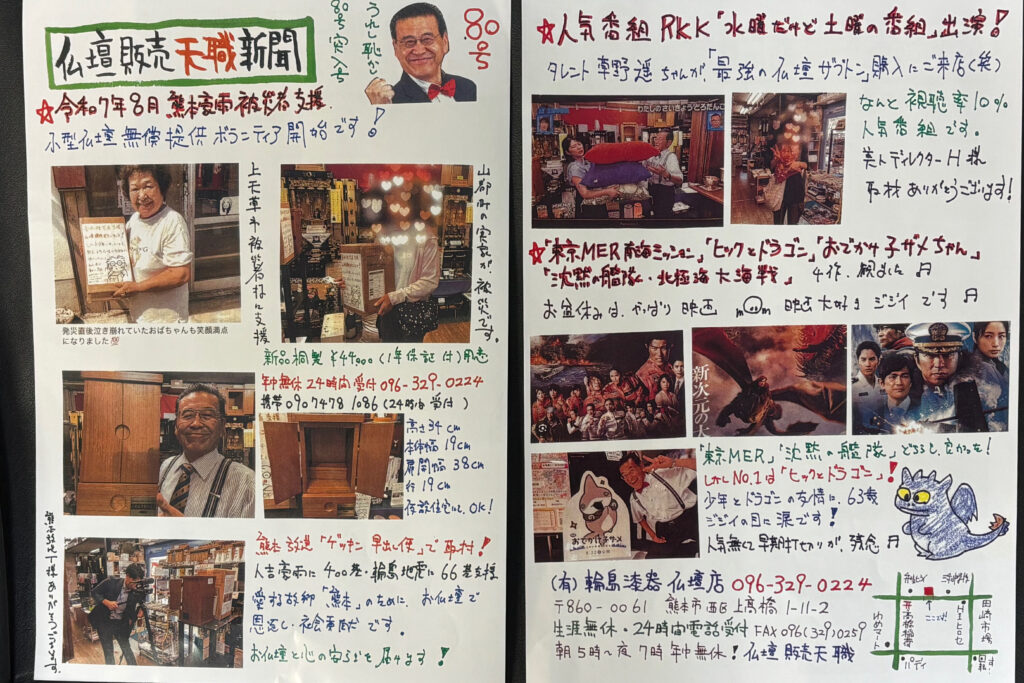 仏壇販売天職新聞
うれし恥かし
80号突入号
80号
☆令和7年8月 熊本豪雨被災者支援
小型仏壇無償提供ボランティア開始です!
上天草市被災者様に支援
山都町の実家が、被災です。
発災直後泣き崩れていたおばちゃんも笑顔満点
になりました
新品桐製 ¥44000(1年保証付)用意
年中無休24時間受付 096-329-0224
携帯 090 7478 1086(24時間受付)
高さ34cm
本体幅19cm
扉開幅38cm
行19cm
仮設住宅にも、OK!
熊本放送「ゲツキン早出し便」で取材!
人吉豪雨に400基・輪島地震に66基支援
愛する故郷「熊本」のために、お仏壇で
恩返し・社会貢献です。
お仏壇と心の安らぎを届けます!
熊本放送T様ありがとうございます。
☆人気番組RKK「水曜だけど土曜の番組」出演!
タレント草野遥ちゃんが、「最強の仏壇ザブトン」購入にご来店(笑)
わたしのさいきょうどろだんご
なんと視聴率10%
人気番組です。
美人ディレクターH様
取材ありがとうございます!
☆「東京MER南海ミッション」「ヒックとドラゴン」「おでかけ子ザメちゃん」
「沈黙の艦隊・北極海大海戦」 4作、観ました♬
お盆休みは、やっぱり映画 映画大好きジジイです♬
新次元の
おでかけ子ザメ
「東京MER」「沈黙の艦隊」どちらも、良かった!
しかしNo.1は「ヒックとドラゴン」!
少年とドラゴンの友情に、63歳
ジジイの目に涙です!
人気無くて早期打ち切りが、残念♬
(有)輪島漆器仏壇店 096-329-0224
〒860-0061 熊本市西区上高橋1-11-2
生涯無休・24時間電話受付 FAX 096(329)0259
朝5時~夜7時 年中無休! 仏壇販売天職
ここだ!
高橋稲荷
田崎市場
ゆめマート
パティ